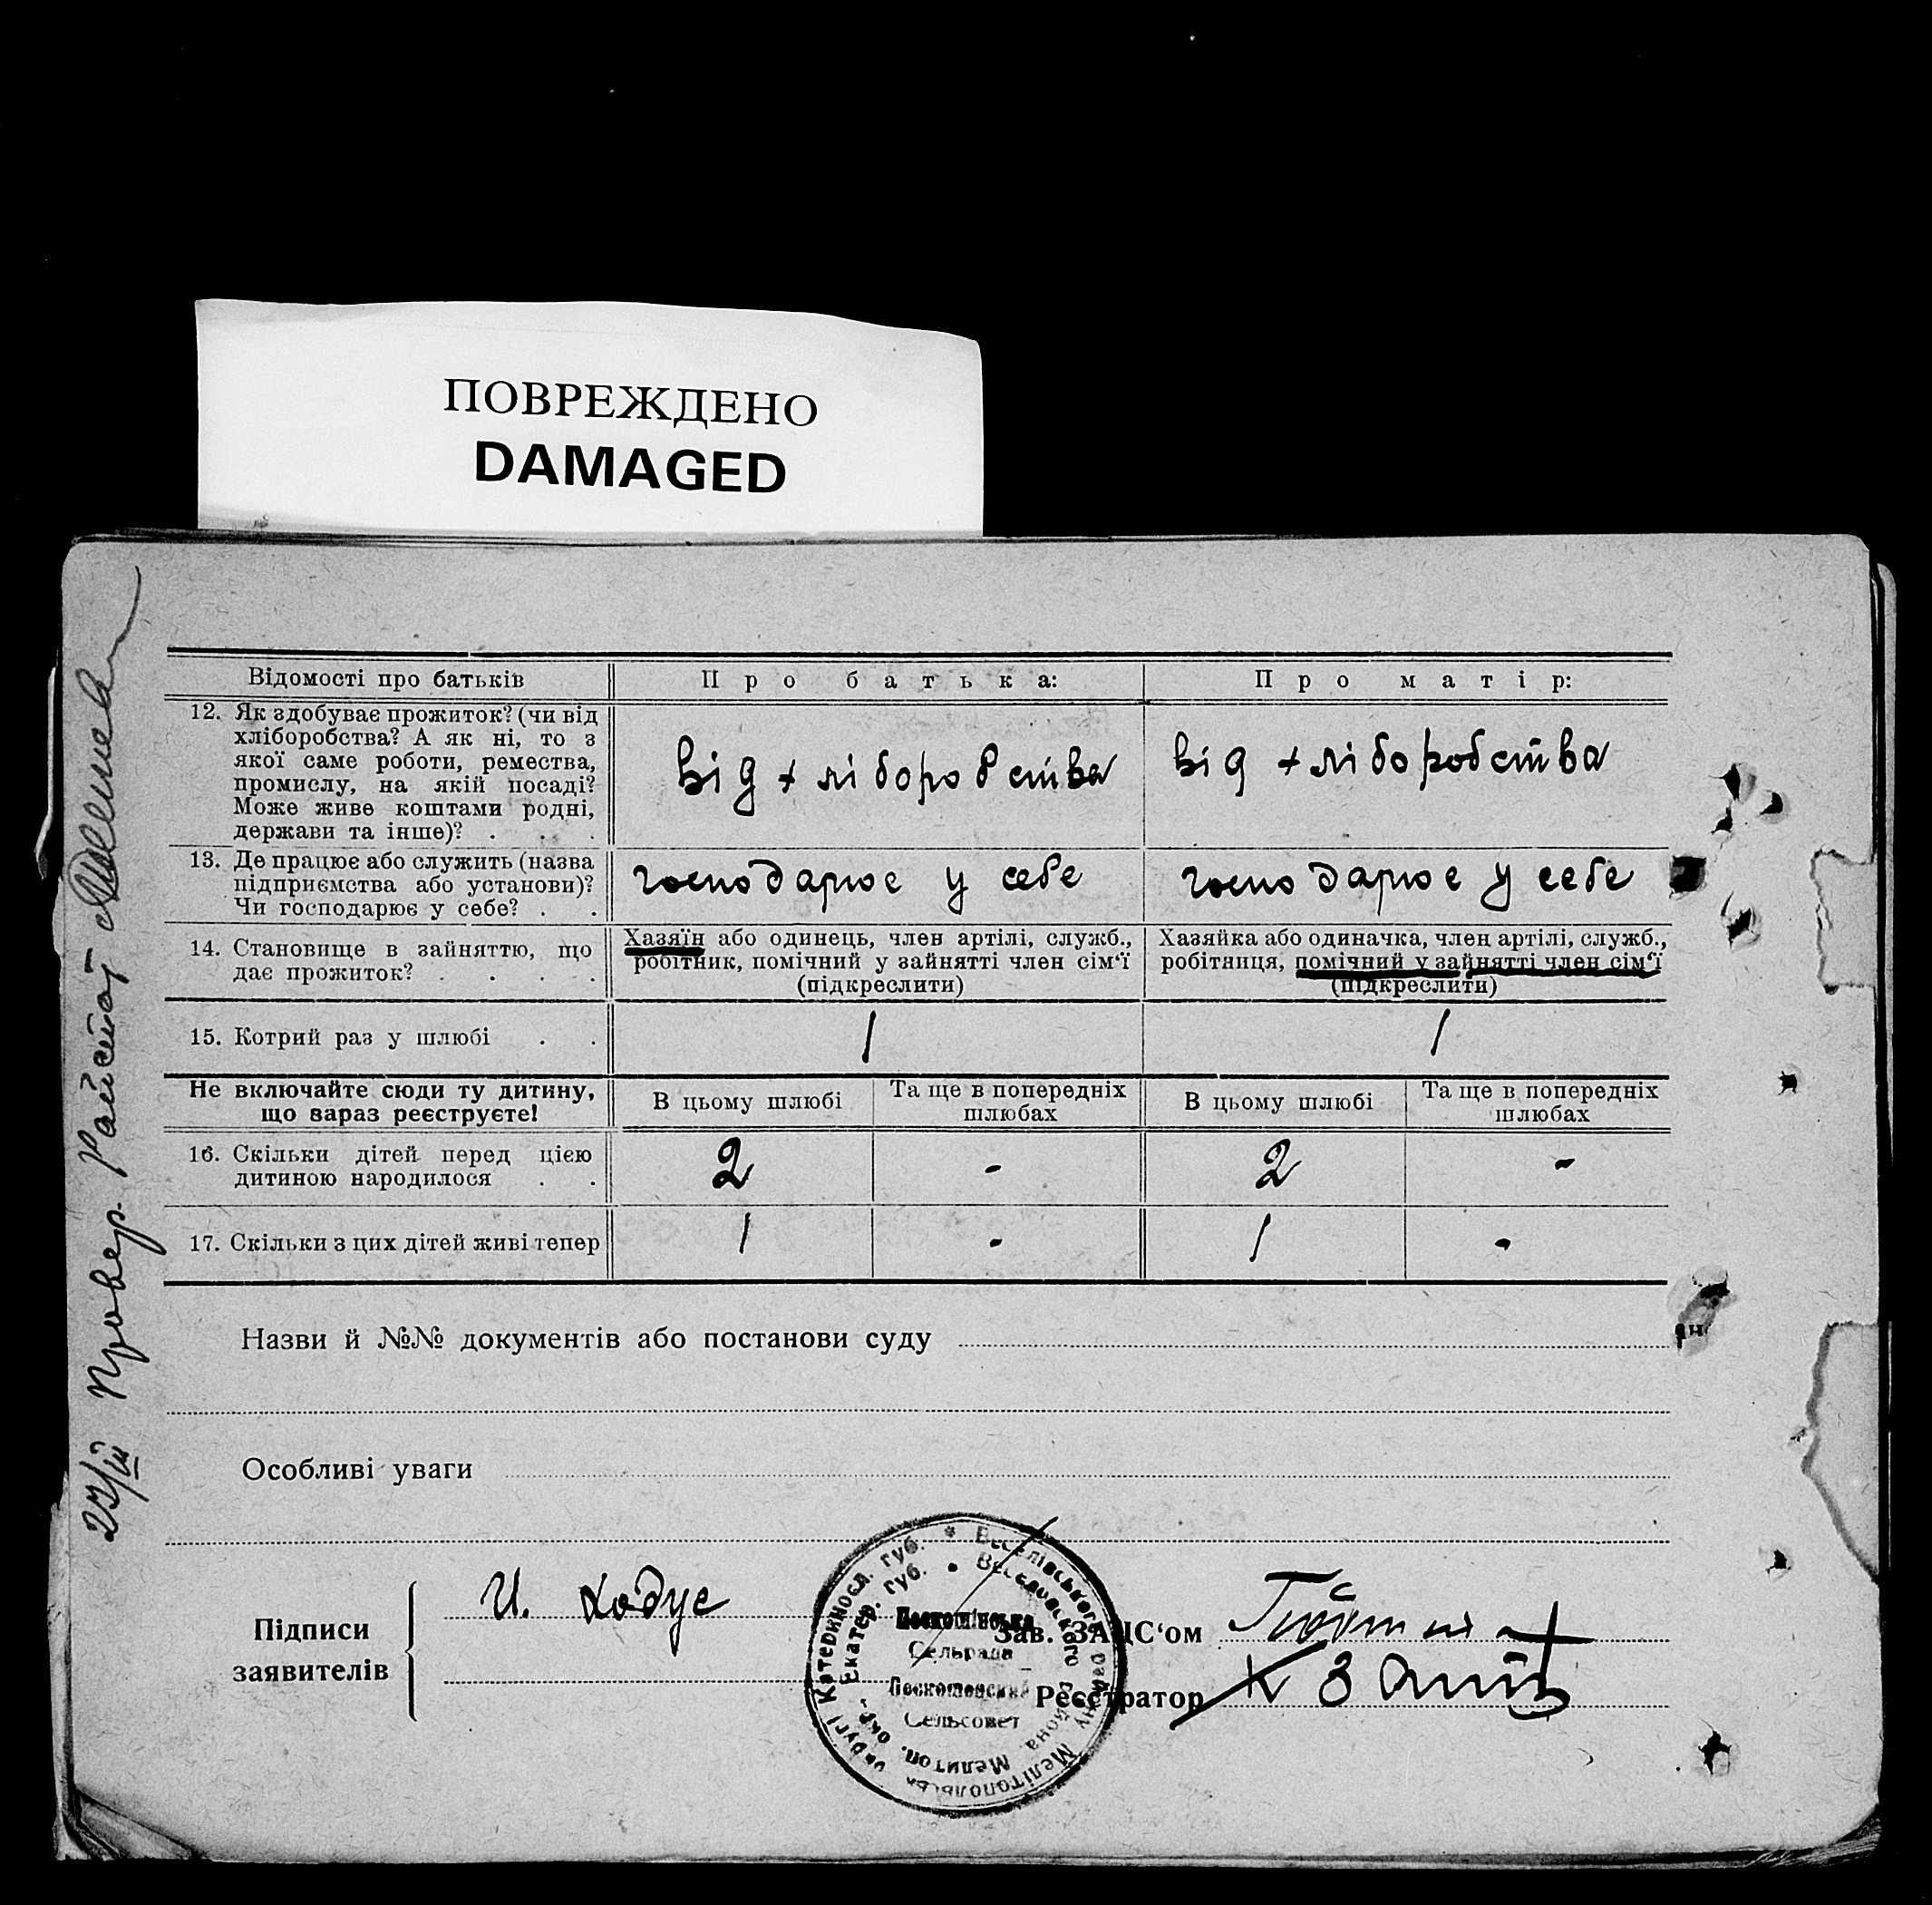 ПОВРЕЖДЕНО
DAMAGED
Відомості про батьків
Про батька:
Про матір:
12. Як здобуває прожиток? (чи від
хліборобства? А як ні, то з
якої саме роботи, ремества,
промислу, на якій посаді?
Може живе коштами родні,
держави та інше)? . . .
від хліборобства
від хліборобства
13. Де працює або служить (назва
підприємства або установи)?
Чи господарює у себе? . .
господарює у себе
господарює у себе
14. Становище в зайняттю, що
дає прожиток? . . . .
Хазяїн або одинець, член артілі, служб.,
робітник, помічний у зайнятті член сім‘ї
(підкреслити)
Хазяйка або одиначка, член артілі, служб.,
робітниця, помічний у зайнятті член сім‘ї
(підкреслити)
15. Котрий раз у шлюбі . .
1
1
Не включайте сюди ту дитину,
що зараз реєструєте!
В цьому шлюбі
Та ще в попередніх
шлюбах
В цьому шлюбі
Та ще в попередніх
шлюбах
16. Скільки дітей перед цією
дитиною народилося . .
2
-
2
-
17. Скільки з цих дітей живі тепер
1
-
1
-
Назви й №№ документів або постанови суду
Особливі уваги
Підписи
заявителів
И. Ходус
Зав. ЗАЦС‘ом
Реєстратор
Веселівського району Мелітопольськ. округі Катериносл. Губ.
Веселовского района Мелитоп. окр. Екатер. Губ.
Сельрада
Сельсовет
Провер. Райстат